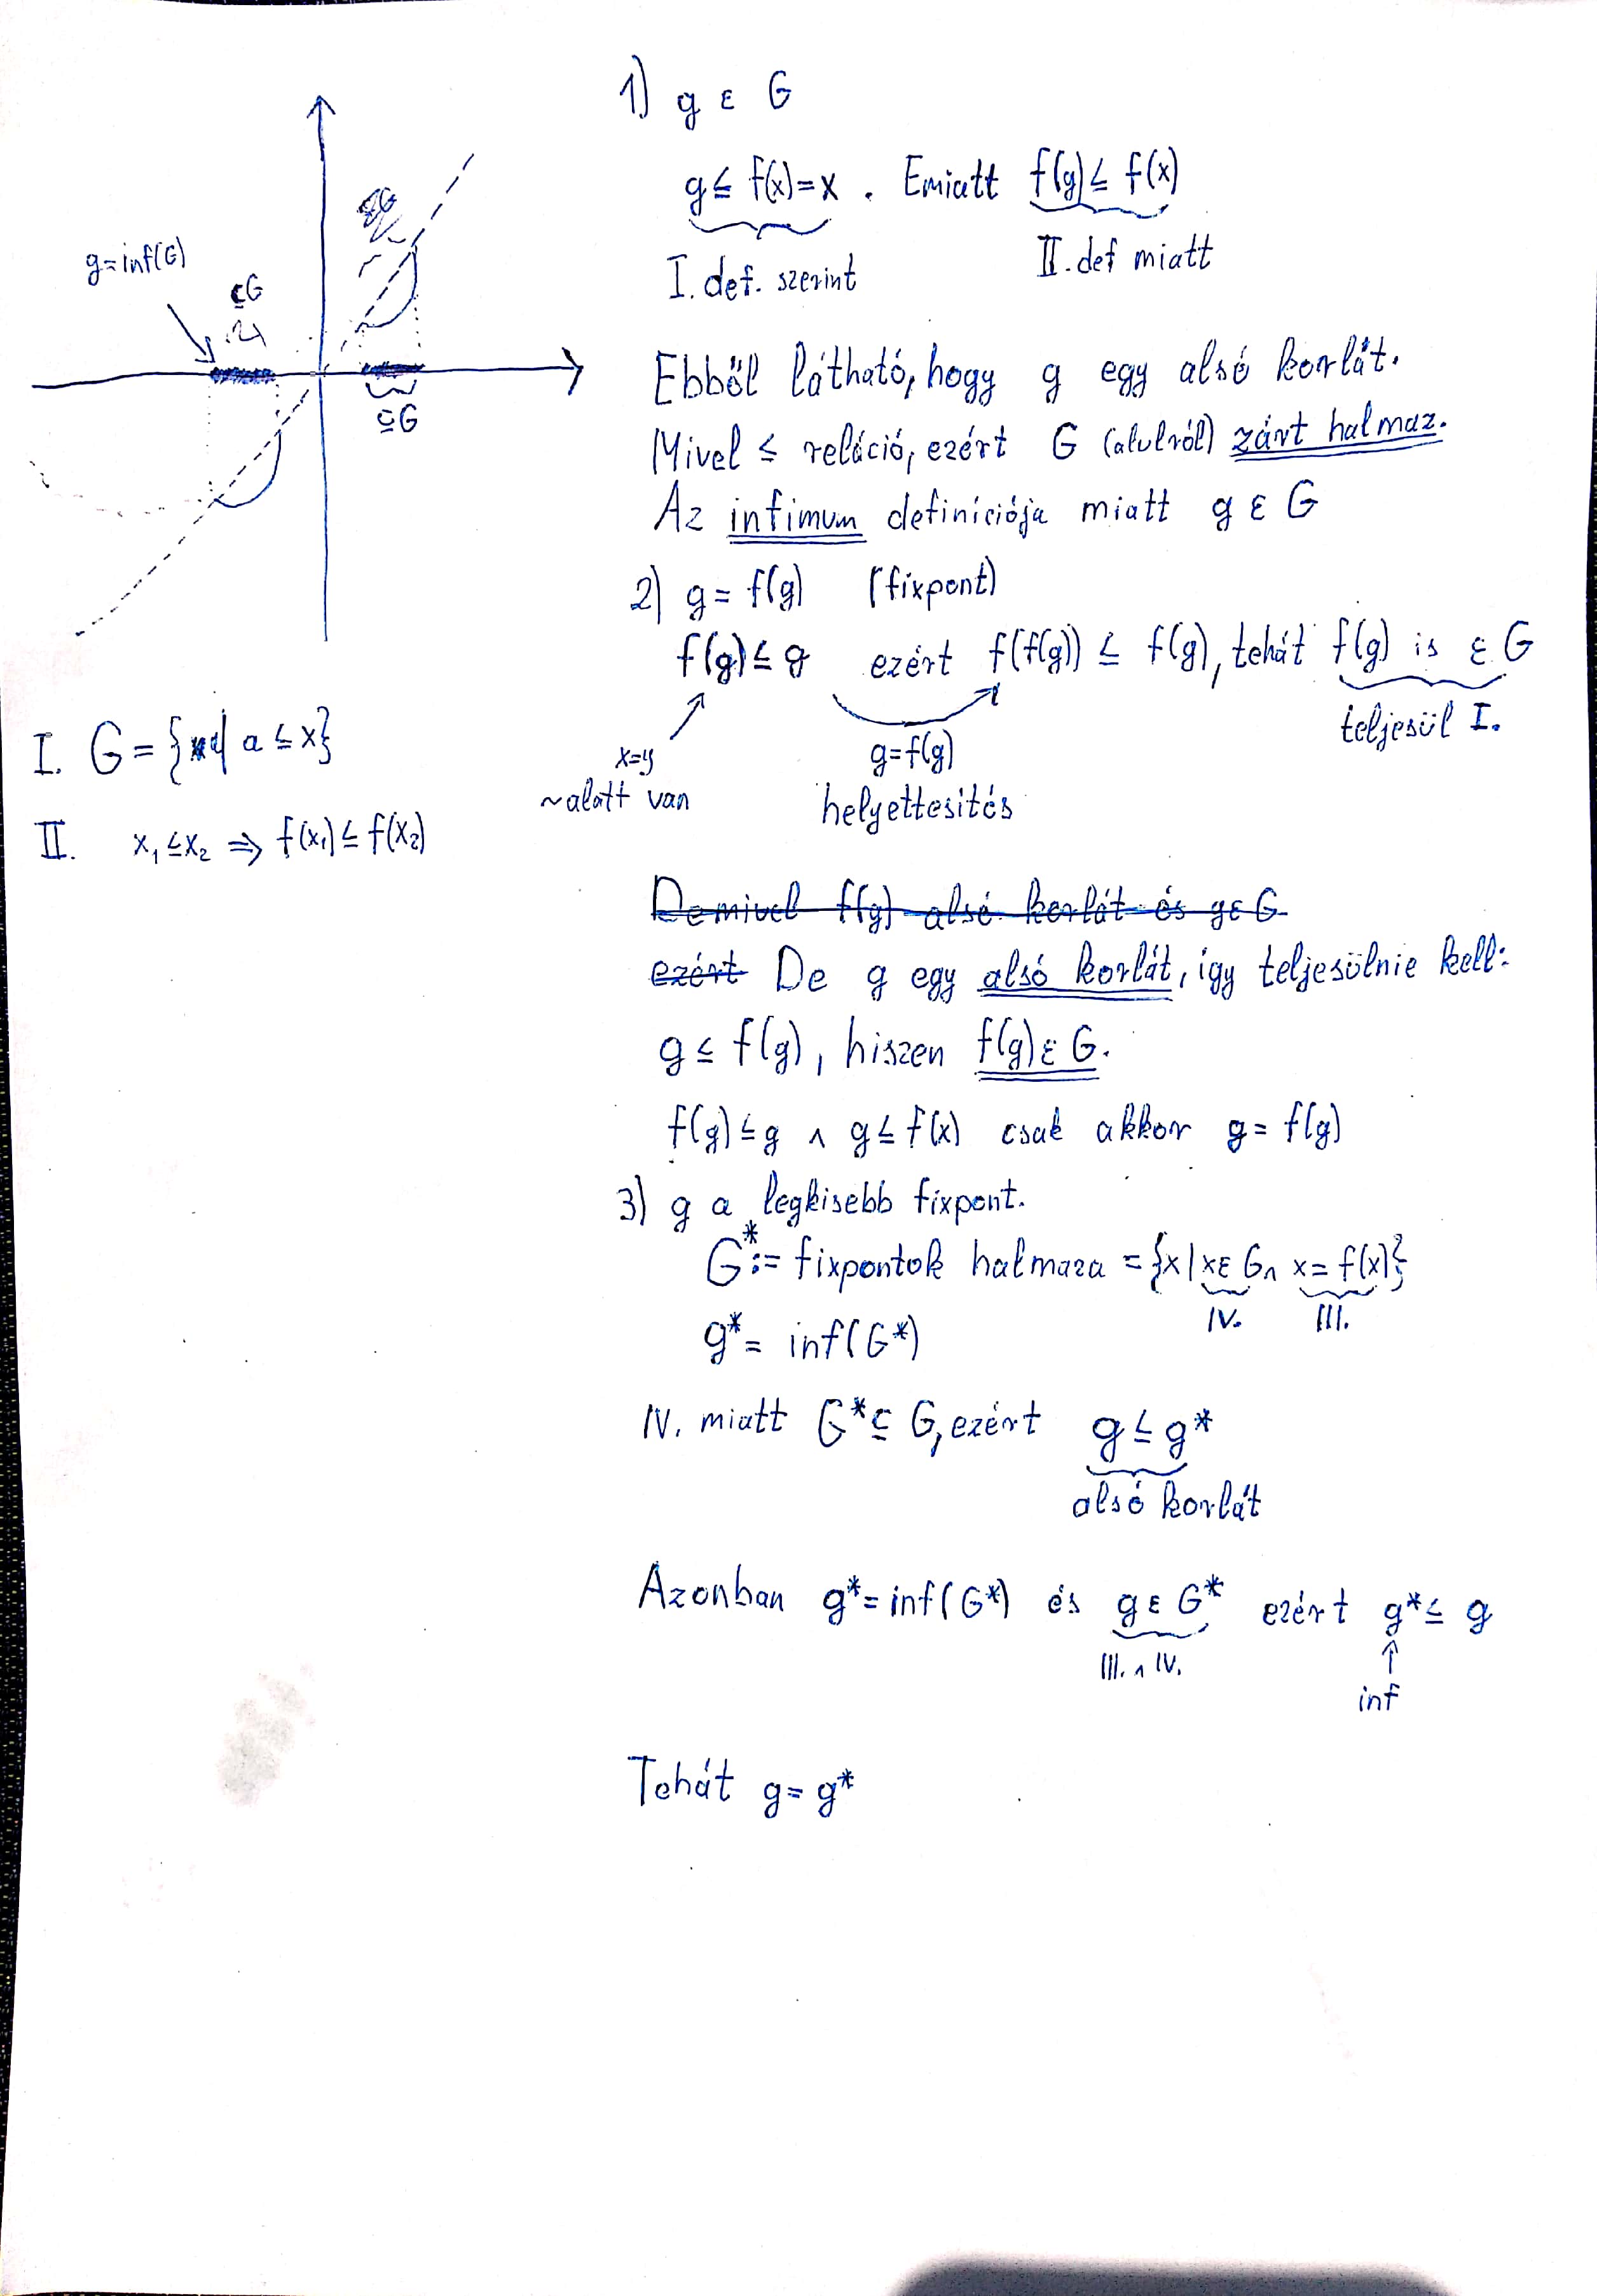 1) g ε G
g ≤ f(x)=x . Emiatt f(g) ≤ f(x)
I. def. szerint
II. def miatt
g=inf(G)
⊆G
⊆G
Ebből látható, hogy g egy alsó korlát.
Mivel ≤ reláció, ezért G (alulról) zárt halmaz.
Az infimum definíciója miatt g ε G
2) g = f(g) (fixpont)
f(g) ≤ g ezért f(f(g)) ≤ f(g), tehát f(g) is ε G
teljesül I.
x=y
~alatt van
g=f(g)
helyettesités
I. G = { | a ≤ x}
II. x₁ ≤ x₂ ⇒ f(x₁) ≤ f(x₂)
De mivel f(g) alsó korlát és g ε G
ezért De g egy alsó korlát, így teljesülnie kell:
g ≤ f(g), hiszen f(g) ε G.
f(g) ≤ g ∧ g ≤ f(x) csak akkor g = f(g)
3) g a legkisebb fixpont.
G* := fixpontok halmaza = {x | x ε G ∧ x = f(x)}
IV. III.
g* = inf(G*)
IV. miatt G* ⊆ G, ezért g ≤ g*
alsó korlát
Azonban g* = inf(G*) és g ε G* ezért g* ≤ g
III. ∧ IV.
inf
Tehát g = g*